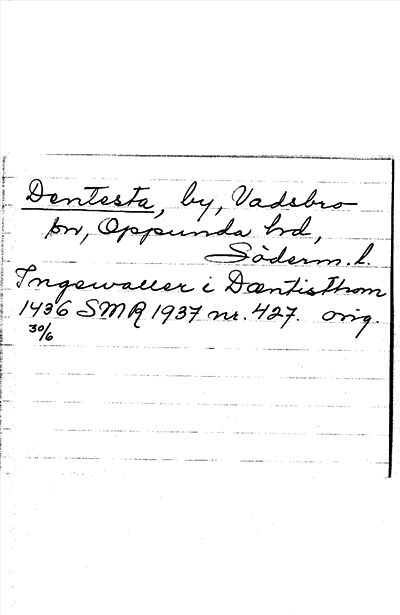 Dentesta, by, Vadsbro
sn, Oppunda hrd,
Söderm. l.
Ingewaller i Dæntisthom
1436 SMR 1937 nr. 427. orig.
30/6